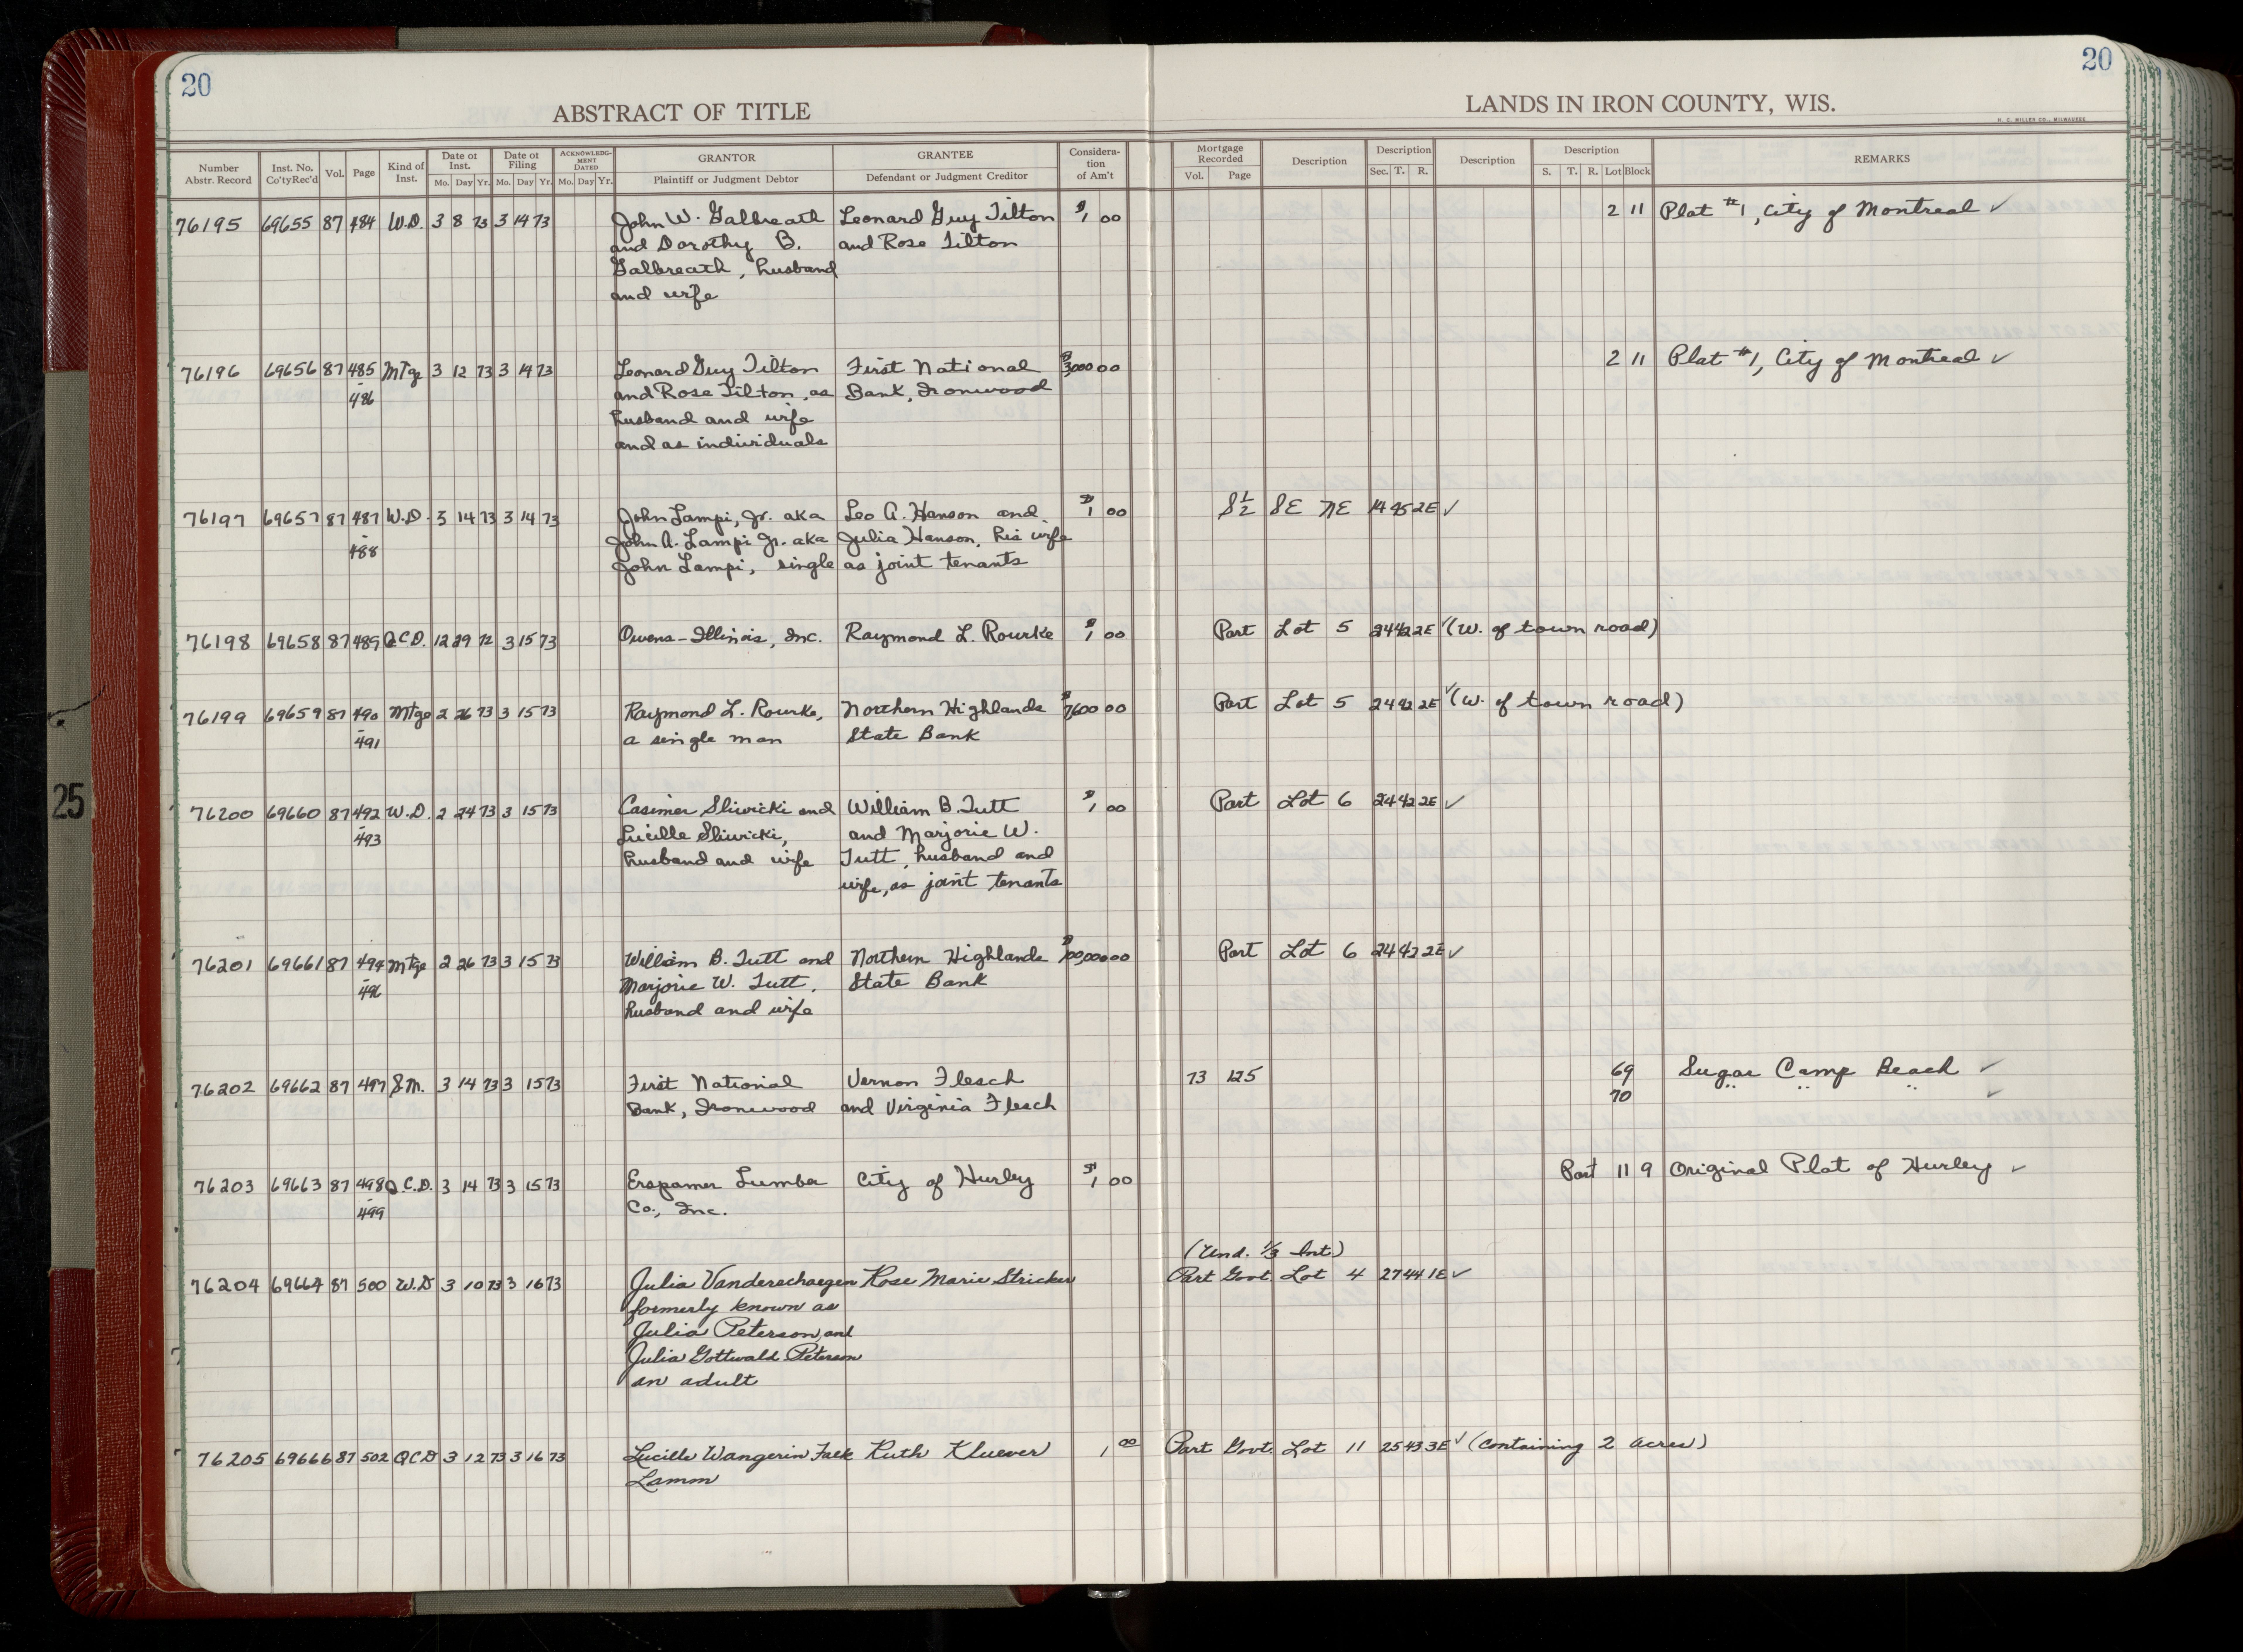 20
20
ABSTRACT OF TITLE
LANDS IN IRON COUNTY, WIS.
H. C. MILLER CO., MILWAUKEE
Number Abstr. Record | Inst. No. Co'ty Rec'd | Vol. | Page | Kind of Inst. | Date of Inst. Mo. Day Yr. | Date of Filing Mo. Day Yr. | ACKNOWLEDGMENT DATED Mo. Day Yr. | GRANTOR Plaintiff or Judgment Debtor | GRANTEE Defendant or Judgment Creditor | Consideration of Am't | Mortgage Recorded Vol. Page | Description | Description Sec. T. R. | Description | Description S. T. R. Lot Block | REMARKS
76195 69655 87 484 W.D. 3 8 73 3 14 73 John W. Galbreath Leonard Guy Tilton $1 00 2 11 Plat #1, City of Montreal ✓
and Dorothy B. and Rose Tilton
Galbreath, husband
and wife
76196 69656 87 485 Mtge 3 12 73 3 14 73 Leonard Guy Tilton First National $3000 00 2 11 Plat #1, City of Montreal ✓
-486 and Rose Tilton, as Bank, Ironwood
husband and wife
and as individuals
76197 69657 87 487 W.D. 3 14 73 3 14 73 John Lampi, Jr. aka Leo A. Hanson and $1 00 S 1/2 SE NE 14 45 2E ✓
-488 John A. Lampi Jr. aka Julia Hanson, his wife
John Lampi, single as joint tenants
76198 69658 87 489 Q.C.D. 12 29 72 3 15 73 Owens-Illinois, Inc. Raymond L. Rourke $1 00 Part Lot 5 24 42 2E ✓ (W. of town road)
76199 69659 87 490 Mtge 2 26 73 3 15 73 Raymond L. Rourke, Northern Highlands $7600 00 Part Lot 5 24 42 2E ✓ (W. of town road)
-491 a single man State Bank
76200 69660 87 492 W.D. 2 24 73 3 15 73 Casimer Sliwicki and William B. Tutt $1 00 Part Lot 6 24 42 2E ✓
-493 Lucille Sliwicki, and Marjorie W.
husband and wife Tutt, husband and
wife, as joint tenants
76201 69661 87 494 Mtge 2 26 73 3 15 73 William B. Tutt and Northern Highlands Part Lot 6 24 42 2E ✓
-496 Marjorie W. Tutt, State Bank
husband and wife
76202 69662 87 497 S.M. 3 14 73 3 15 73 First National Vernon Flesch 73 125 69 Sugar Camp Beach ✓
Bank, Ironwood and Virginia Flesch 70 " " " ✓
76203 69663 87 498 Q.C.D. 3 14 73 3 15 73 Erspamer Lumber City of Hurley $1 00 Part 11 9 Original Plat of Hurley ✓
-499 Co., Inc.
(Und. 1/3 Int)
76204 69664 87 500 W.D 3 10 73 3 16 73 Julia Vanderschaegen Rose Marie Stricker Part Govt. Lot 4 27 44 1E ✓
formerly known as
Julia Peterson, and
Julia Gottwald Peterson
an adult
76205 69666 87 502 QCD 3 12 73 3 16 73 Lucille Wangerin Falk Ruth Kluever 1 00 Part Govt. Lot 11 25 43 3E ✓ (Containing 2 acres)
Lamm
25